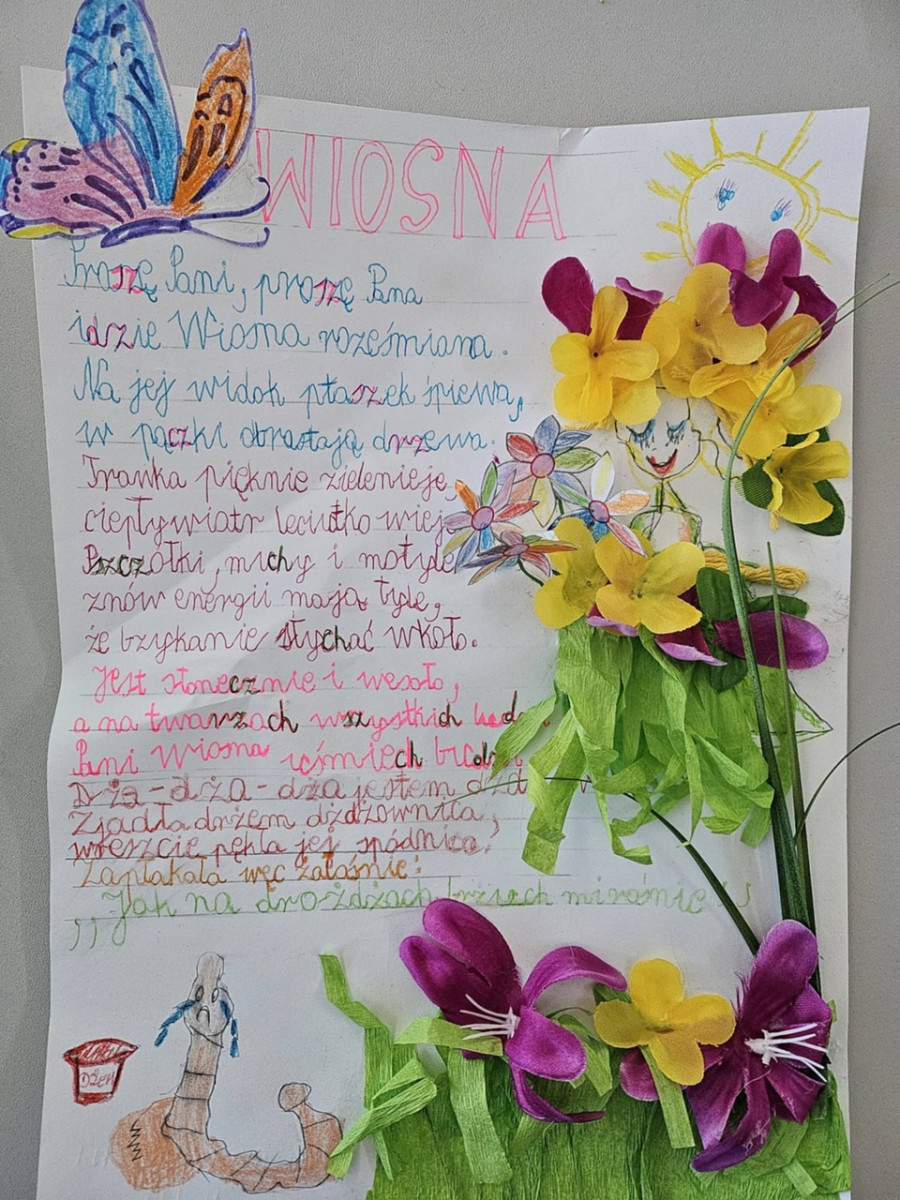 WIOSNA
Proszę Pani, proszę Pana
idzie Wiosna roześmiana.
Na jej widok ptaszek śpiewa,
w pączki obrastają drzewa.
Trawka pięknie zielenieje,
ciepły wiatr leciutko wieje
Pszczółki, muchy i motyle
znów energii mają tyle,
że bzykanie słychać wkoło.
Jest słonecznie i wesoło,
a na twarzach wszystkich
Pani Wiosna uśmiech
Dżə-dża-dża jestem
Zjadła drzem dżdżownica,
wreszcie pękła jej spódnica.
Zapłakała więc żałośnie:
,,Jak na drożdżach brzuch mi rośnie''
Dżem